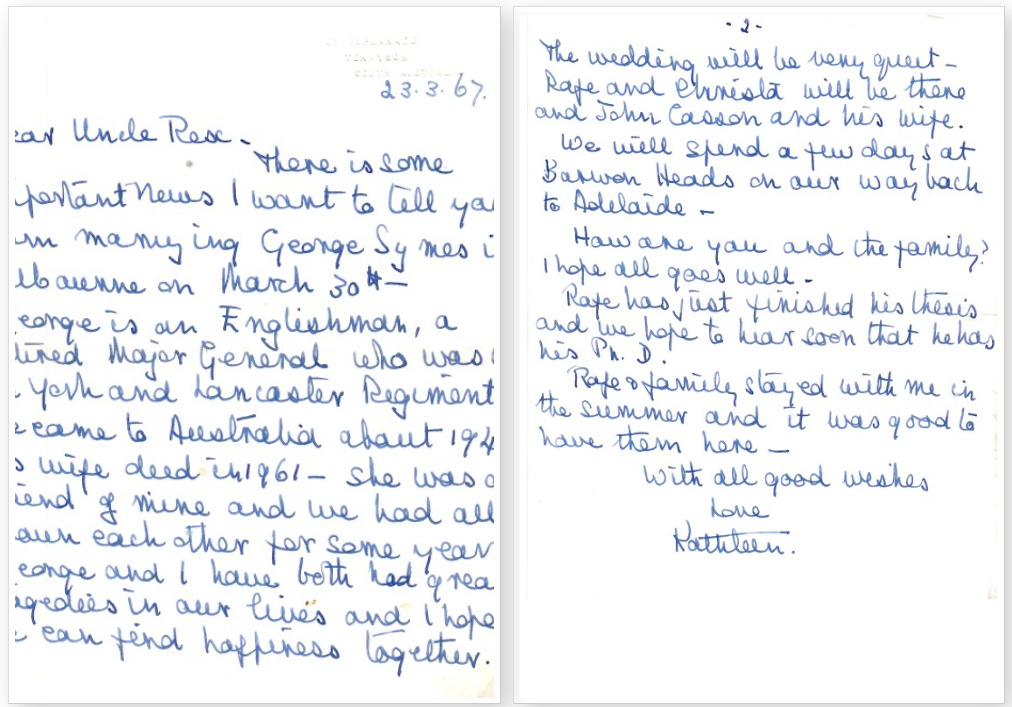 23.3.67.
ear Uncle Rex -
There is some
portant News I want to tell yo
m marrying George Symes i
lbourne on March 30th -
eorge is an Englishman, a
tired Major General who was
York and Lancaster Regiment
e came to Australia about 194
s wife died in 1961 - She was a
iend of mine and we had all
own each other for some year
eorge and I have both had grea
agedies in our lives and I hope
e can find happiness together.
- 2 -
The wedding will be very quiet -
Rafe and Christa will be there
and John Casson and his wife.
We will spend a few days at
Barwon Heads on our way back
to Adelaide -
How are you and the family?
I hope all goes well -
Rafe has just finished his thesis
and we hope to hear soon that he has
his Ph.D.
Rafe & family stayed with me in
the summer and it was good to
have them here -
With all good wishes
Love
Kathleen.